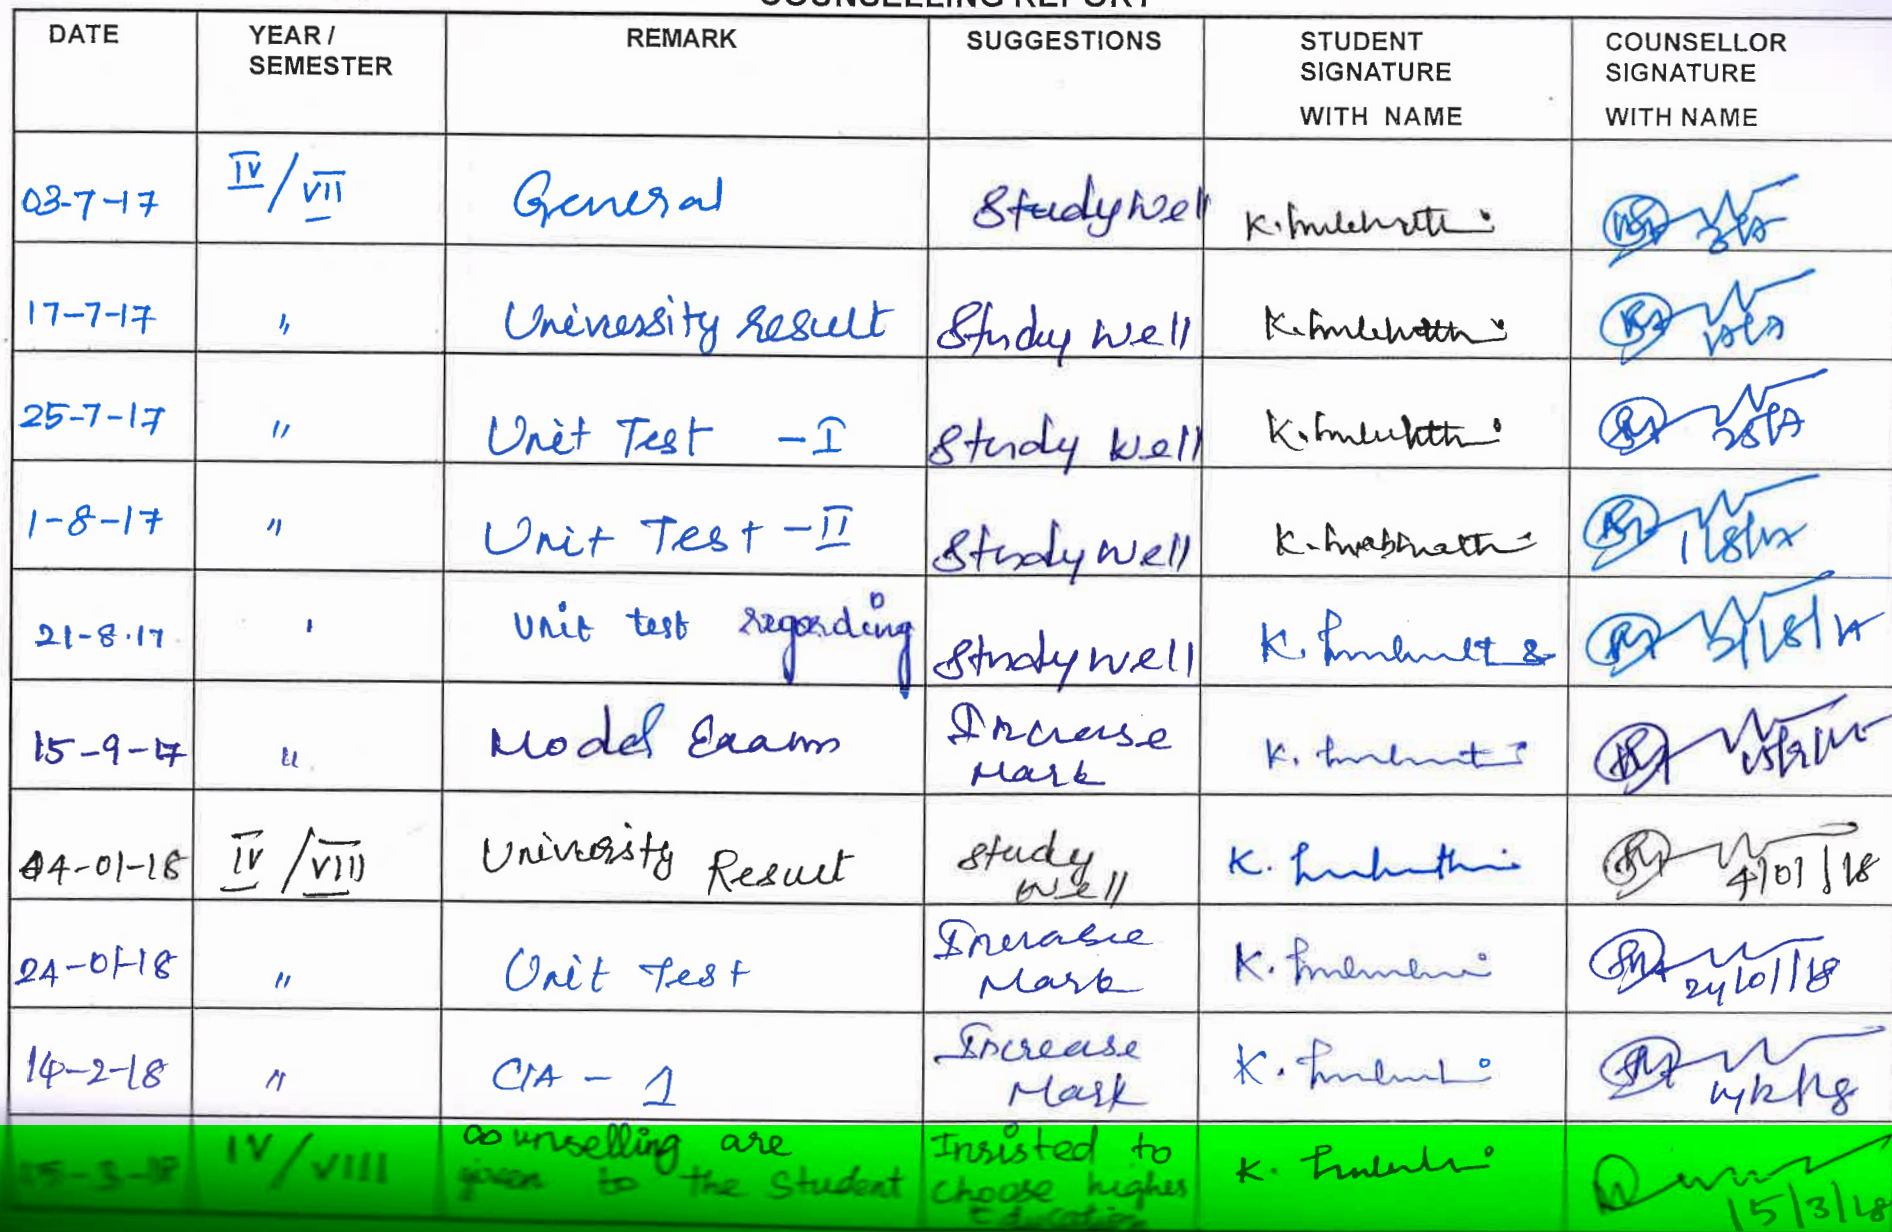 COUNSELLING REPORT
DATE YEAR / SEMESTER REMARK SUGGESTIONS STUDENT SIGNATURE WITH NAME COUNSELLOR SIGNATURE WITH NAME
03-7-17 IV/VII General Study well K.
17-7-17 " University result Study well K.
25-7-17 " Unit Test - I Study well K.
1-8-17 " Unit Test - II Study well K. 1/8/17
21-8-17 " Unit test regarding Study well K. 21/8/17
15-9-17 " Model Exams Increase Mark K.
04-01-18 IV/VIII University Result study well K. 4/01/18
24-01-18 " Unit Test Increase Mark K. 24/01/18
14-2-18 " CIA - 1 Increase Mark K. 14/2/18
15-3-18 IV/VIII counselling are given to the Student Insisted to choose higher Education K. 15/3/18